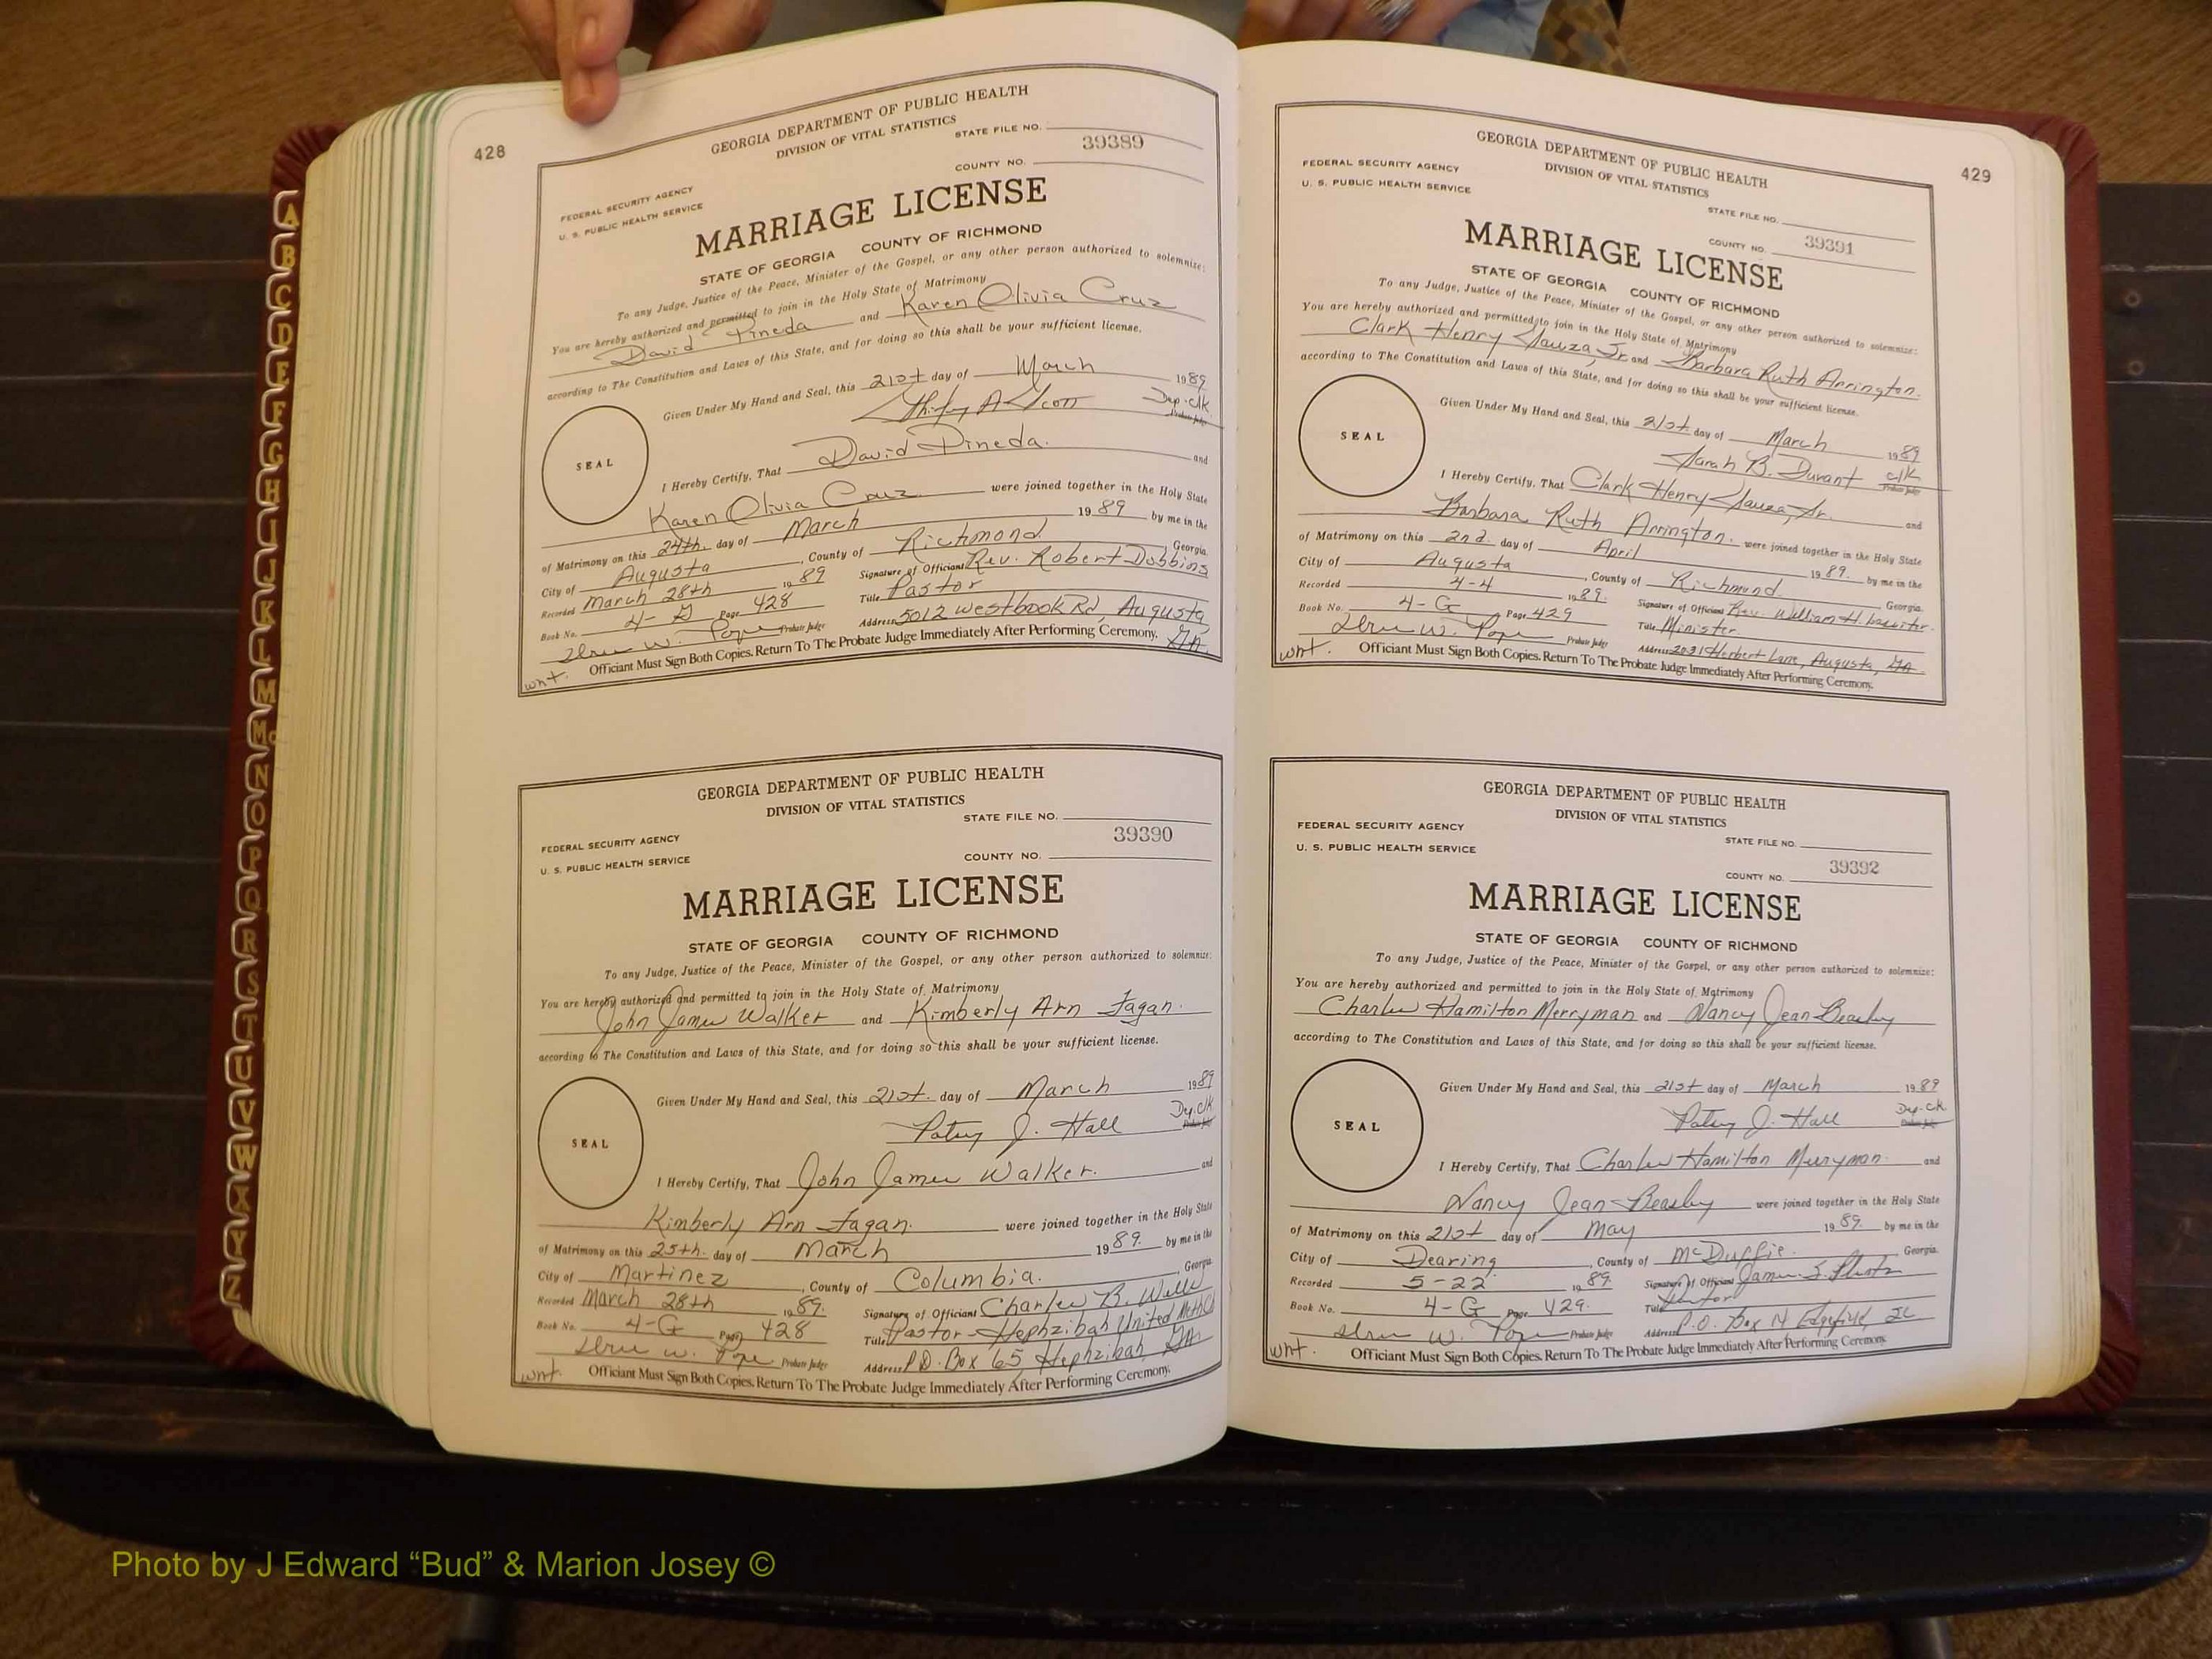 428
GEORGIA DEPARTMENT OF PUBLIC HEALTH
DIVISION OF VITAL STATISTICS
STATE FILE NO.
39389
FEDERAL SECURITY AGENCY
COUNTY NO.
U. S. PUBLIC HEALTH SERVICE
MARRIAGE LICENSE
STATE OF GEORGIA COUNTY OF RICHMOND
To any Judge, Justice of the Peace, Minister of the Gospel, or any other person authorized to solemnize:
You are hereby authorized and permitted to join in the Holy State of Matrimony
David Pineda and Karen Olivia Cruz
according to The Constitution and Laws of this State, and for doing so this shall be your sufficient license.
Given Under My Hand and Seal, this 21st day of March 1989
A Dep. Clk. Probate Judge
SEAL
I Hereby Certify, That David Pineda. and
Karen Olivia Cruz were joined together in the Holy State
of Matrimony on this 24th. day of March 1989 by me in the
City of Augusta, County of Richmond. Georgia.
Recorded March 28th 1989 Signature of Officiant Rev. Robert Dobbins
Book No. 4-G Page 428 Title Pastor
W. Pope Probate Judge Address 5012 Westbook Rd, Augusta GA
wnt. Officiant Must Sign Both Copies. Return To The Probate Judge Immediately After Performing Ceremony.
GEORGIA DEPARTMENT OF PUBLIC HEALTH
DIVISION OF VITAL STATISTICS
STATE FILE NO.
39390
FEDERAL SECURITY AGENCY
COUNTY NO.
U. S. PUBLIC HEALTH SERVICE
MARRIAGE LICENSE
STATE OF GEORGIA COUNTY OF RICHMOND
To any Judge, Justice of the Peace, Minister of the Gospel, or any other person authorized to solemnize:
You are hereby authorized and permitted to join in the Holy State of Matrimony
John James Walker and Kimberly Ann Fagan.
according to The Constitution and Laws of this State, and for doing so this shall be your sufficient license.
Given Under My Hand and Seal, this 21st. day of March 1989
Patsy J. Hall Dy. Clk Probate Judge
SEAL
I Hereby Certify, That John James Walker. and
Kimberly Ann Fagan. were joined together in the Holy State
of Matrimony on this 25th. day of March 1989. by me in the
City of Martinez, County of Columbia. Georgia.
Recorded March 28th 1989. Signature of Officiant Charles B. Wells
Book No. 4-G Page 428 Title Pastor - Hephzibah United Meth
W. Pope Probate Judge Address P.O. Box 65, Hephzibah, GA
wnt. Officiant Must Sign Both Copies. Return To The Probate Judge Immediately After Performing Ceremony.
429
GEORGIA DEPARTMENT OF PUBLIC HEALTH
DIVISION OF VITAL STATISTICS
FEDERAL SECURITY AGENCY
U. S. PUBLIC HEALTH SERVICE
STATE FILE NO.
COUNTY NO. 39391
MARRIAGE LICENSE
STATE OF GEORGIA COUNTY OF RICHMOND
To any Judge, Justice of the Peace, Minister of the Gospel, or any other person authorized to solemnize:
You are hereby authorized and permitted to join in the Holy State of Matrimony
Clark Henry Sauza, Jr. and Barbara Ruth Arrington.
according to The Constitution and Laws of this State, and for doing so this shall be your sufficient license.
Given Under My Hand and Seal, this 21st day of March 1989
Sarah B. Durant Clk Probate Judge
SEAL
I Hereby Certify, That Clark Henry Sauza, Jr. and
Barbara Ruth Arrington. were joined together in the Holy State
of Matrimony on this 2nd. day of April 1989. by me in the
City of Augusta, County of Richmond. Georgia.
Recorded 4-4 1989. Signature of Officiant Rev. William H.
Book No. 4-G Page 429 Title Minister.
W. Pope Probate Judge Address 2031 Herbert Lane, Augusta, GA
wnt. Officiant Must Sign Both Copies. Return To The Probate Judge Immediately After Performing Ceremony.
GEORGIA DEPARTMENT OF PUBLIC HEALTH
DIVISION OF VITAL STATISTICS
FEDERAL SECURITY AGENCY
U. S. PUBLIC HEALTH SERVICE
STATE FILE NO.
COUNTY NO. 39392
MARRIAGE LICENSE
STATE OF GEORGIA COUNTY OF RICHMOND
To any Judge, Justice of the Peace, Minister of the Gospel, or any other person authorized to solemnize:
You are hereby authorized and permitted to join in the Holy State of Matrimony
Charles Hamilton Merryman and Nancy Jean Beasley
according to The Constitution and Laws of this State, and for doing so this shall be your sufficient license.
Given Under My Hand and Seal, this 21st day of March 1989
Patsy J. Hall Dy. Ck. Probate Judge
SEAL
I Hereby Certify, That Charles Hamilton Merryman. and
Nancy Jean Beasley were joined together in the Holy State
of Matrimony on this 21st day of May 1989. by me in the
City of Dearing, County of McDuffie. Georgia.
Recorded 5-22 1989. Signature of Officiant James S.
Book No. 4-G Page 429. Title
W. Pope Probate Judge Address P.O. Box N Edgefield, SC
wnt. Officiant Must Sign Both Copies. Return To The Probate Judge Immediately After Performing Ceremony.
A
B
C
D
E
F
G
H
I
J
K
L
M
Mc
N
O
P
Q
R
S
T
U
V
W
X
Y
Z
Photo by J Edward “Bud” & Marion Josey ©